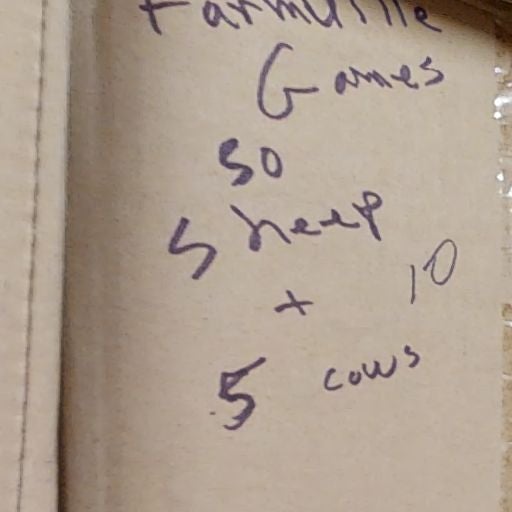 Farmville
Games
50
Sheep
+ 10
5 cows